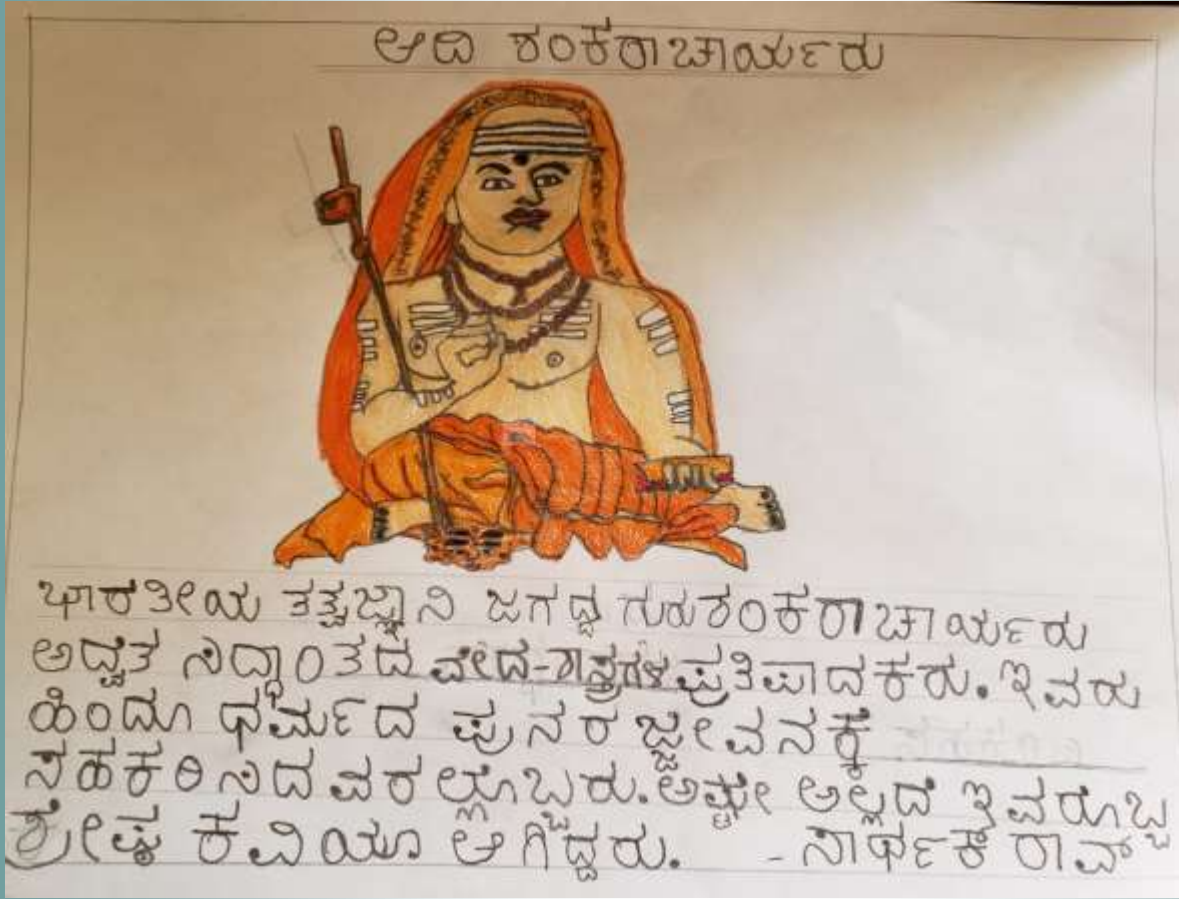 ಆದಿ ಶಂಕರಾಚಾರ್ಯರು
ಭಾರತೀಯ ತತ್ವಜ್ಞಾನಿ ಜಗದ್ಗ ಗುರುಶಂಕರಾಚಾರ್ಯರು
ಅದ್ವೈತ ಸಿದ್ಧಾಂತದ ವೇದ-ಶಾಸ್ತ್ರಗಳ ಪ್ರತಿಪಾದಕರು. ಇವರು
ಹಿಂದೂ ಧರ್ಮದ ಪುನರಜ್ಜೀವನಕ್ಕೆ
ಸಹಕರಿಸಿದವರಲ್ಲೊಬ್ಬರು. ಅಷ್ಟೇ ಅಲ್ಲದೆ ಇವರೊಬ್ಬ
ಶ್ರೇಷ್ಠ ಕವಿಯೂ ಆಗಿದ್ದರು. - ಸಾರ್ಥಕ ರಾವ್